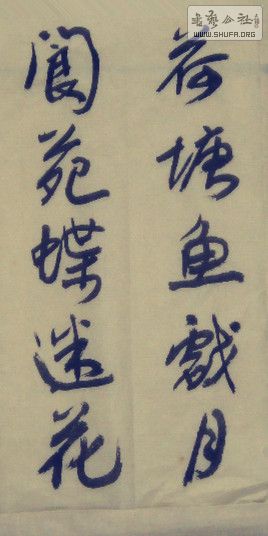 荷塘鱼戏月
阆苑蝶迷花
书艺公社
WWW.SHUFA.ORG